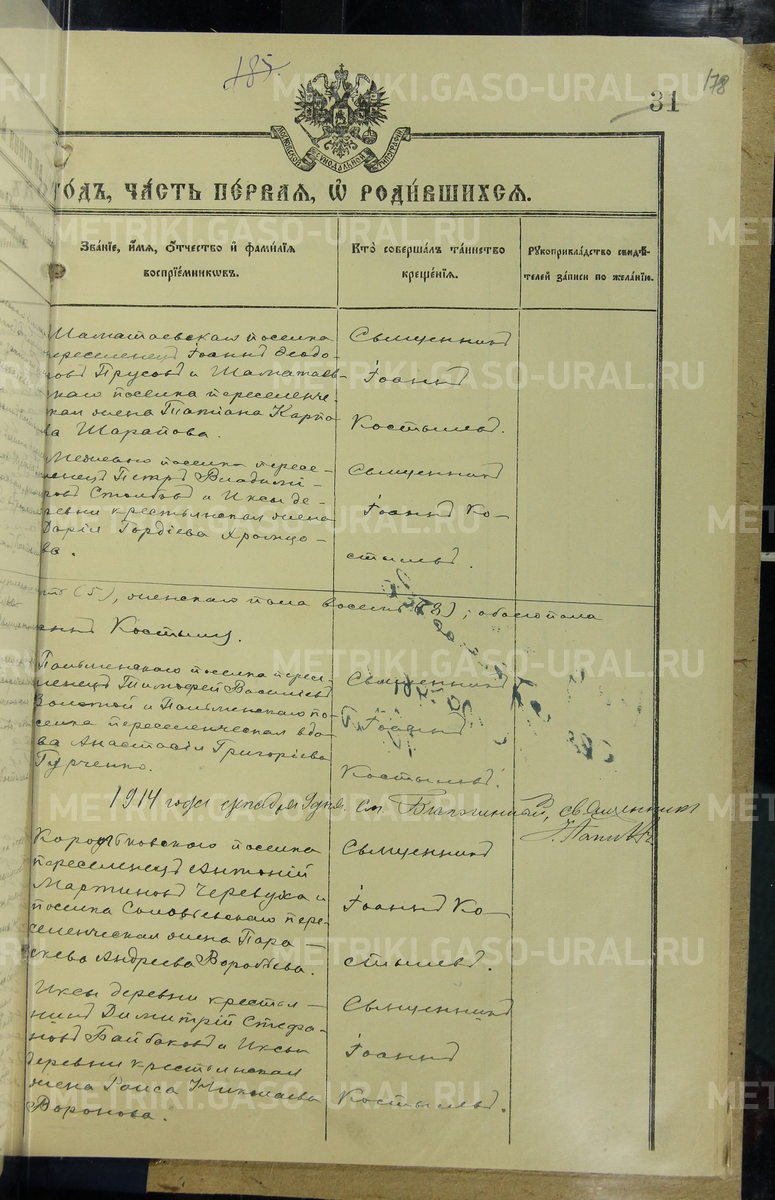 185
178
31
МОСКОВСКОЙ СИНОДАЛЬНОЙ ТИПОГРАФІИ
ГО́ДЪ, ЧА́СТЬ ПЕ́РВАЯ, Ѡ҆ РОДИ́ВШИХСЯ.
Зва́нїе, и҆́мя, ѻ҆́тчество и҆ фами́лїя
воспрїе́мникѡвъ.
Кто̀ соверша́лъ та́инство
креще́нїя.
Рꙋкоприкла́дство свидѣ́-
телей за́писи по жела́нїю.
Шаматаевскаго поселка
переселенецъ Іоаннъ Ѳеодо-
ровъ Прусовъ и Шаматаев-
скаго поселка переселенче-
ская жена Татіана Карпо-
ва Шарапова.
Священникъ
Іоаннъ
Костылевъ.
поселка пересе-
ленецъ Петръ Владимі-
ровъ Столбовъ и Иксы де-
ревни крестьянская жена
Дарія Гордіева Хромцо-
ва.
Священникъ
Іоаннъ Ко-
стылевъ.
(5), женскаго пола восемь (8); обоего пола
поселка пересе-
ленецъ Тимофей Васильевъ
Золотой и по-
селка переселенческая вдо-
ва Анастасія Григоріева
Гурченко.
Священникъ
Іоаннъ
Костылевъ.
1914 года дня. священникъ
поселка
переселенецъ Антоній
Мартиновъ Черевуха и
поселка Соловьевскаго пере-
селенческая жена Пара-
скева Андреева Воробьева.
Священникъ
Іоаннъ Ко-
стылевъ.
Иксы деревни крестья-
нинъ Димитрій Стефа-
новъ Байбаковъ и Иксы
деревни крестьянская
жена Раиса Николаева
Воронова.
Священникъ
Іоаннъ
Костылевъ.
METRIKI.GASO-URAL.RU